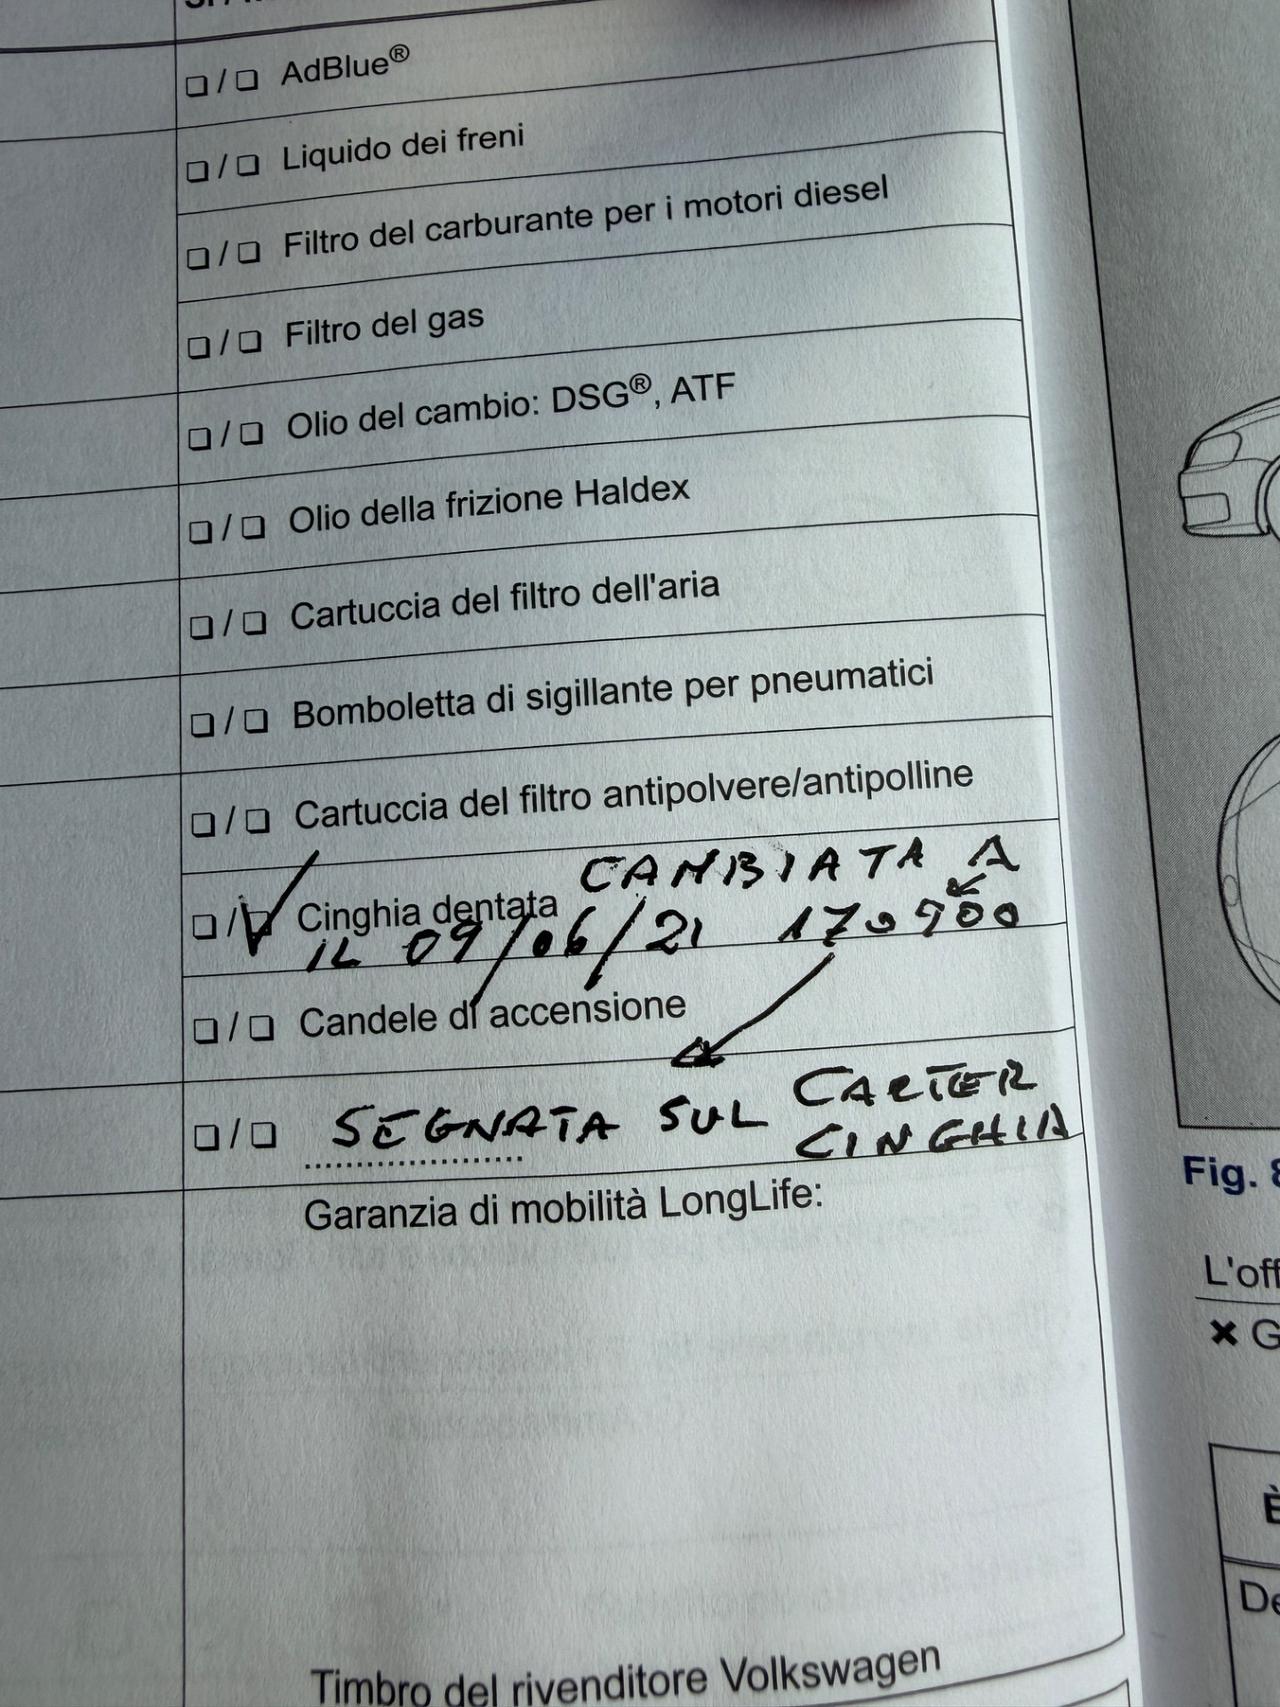 ❏ / ❏ AdBlue®
❏ / ❏ Liquido dei freni
❏ / ❏ Filtro del carburante per i motori diesel
❏ / ❏ Filtro del gas
❏ / ❏ Olio del cambio: DSG®, ATF
❏ / ❏ Olio della frizione Haldex
❏ / ❏ Cartuccia del filtro dell'aria
❏ / ❏ Bomboletta di sigillante per pneumatici
❏ / ❏ Cartuccia del filtro antipolvere/antipolline
❏ / ❏ Cinghia dentata CAMBIATA A
IL 09/06/21 170900
❏ / ❏ Candele di accensione
❏ / ❏ SEGNATA SUL CARTER
CINGHIA
Garanzia di mobilità LongLife:
Timbro del rivenditore Volkswagen
Fig. 8
L'off
✖ G
È
De